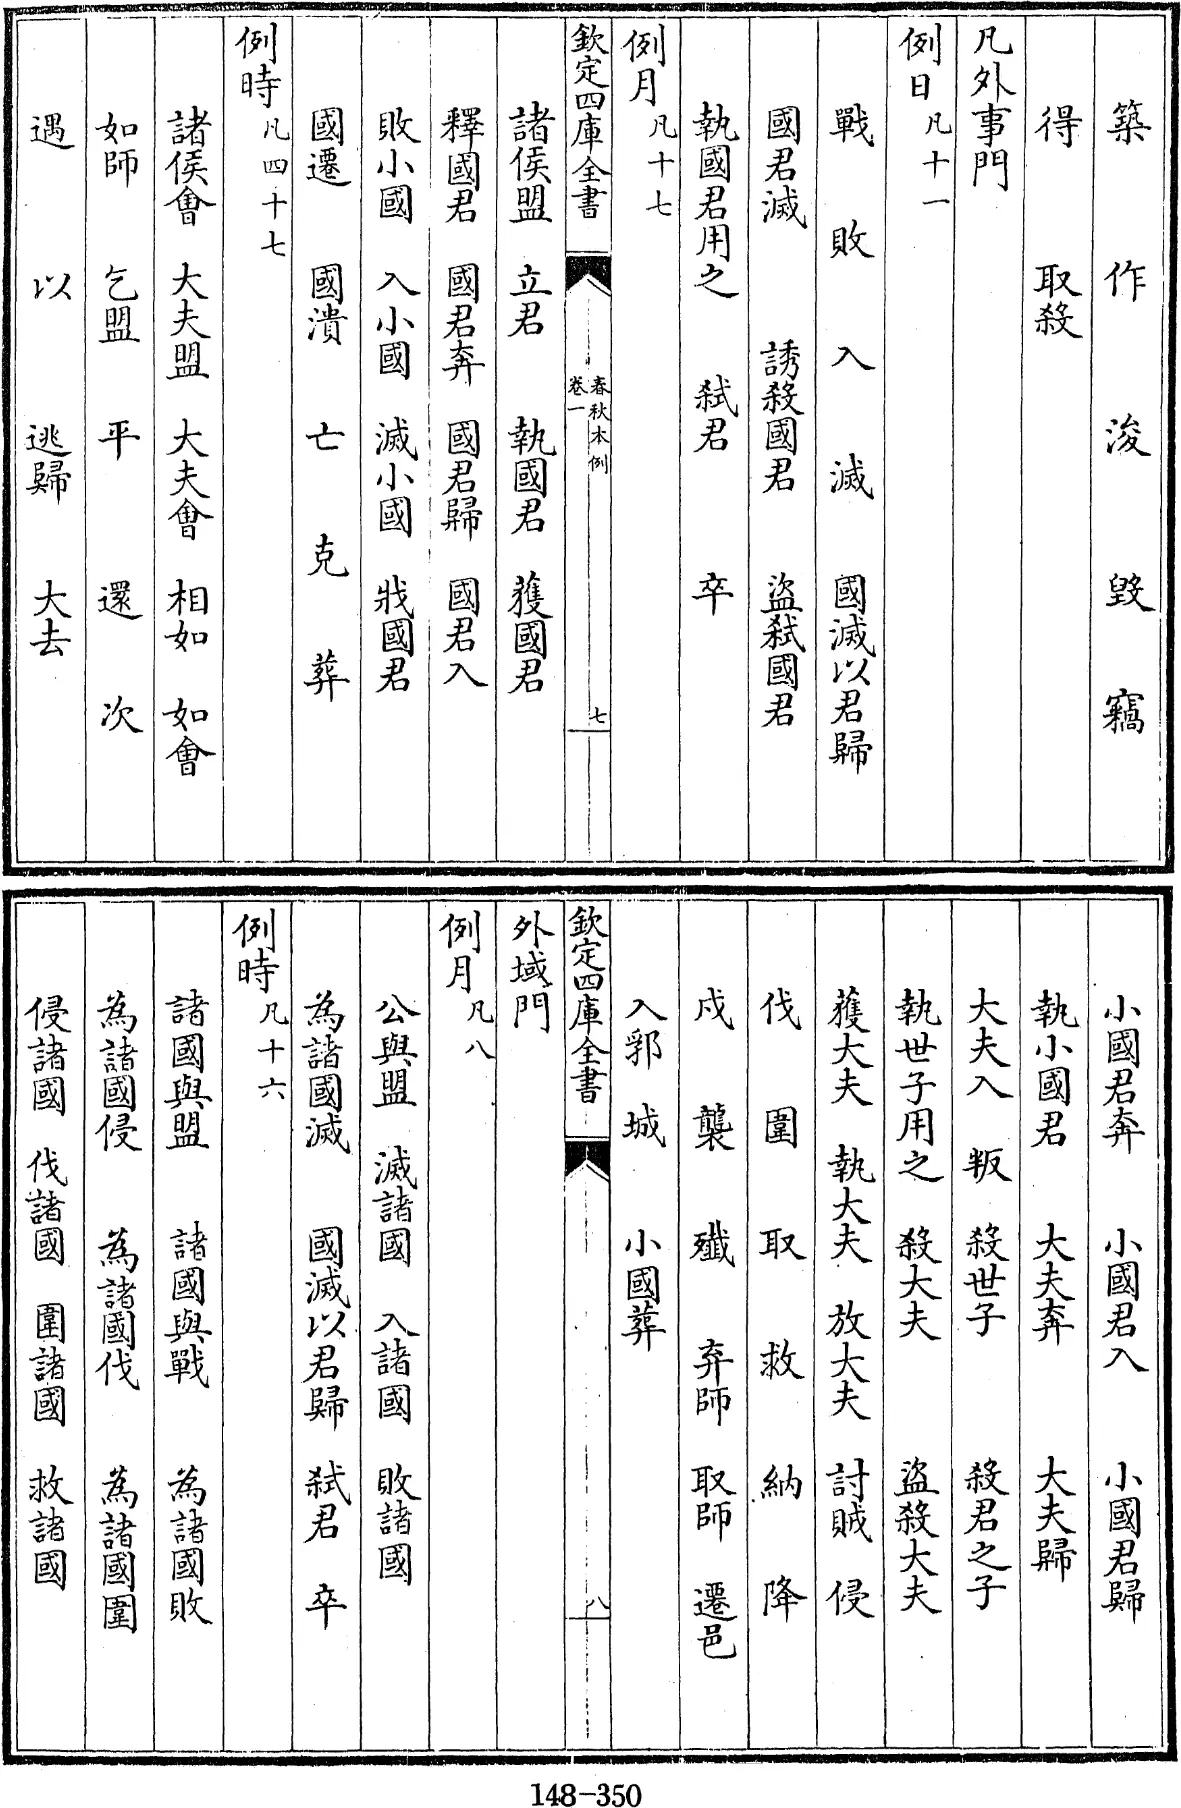 築 作 浚 毀 竊
得 取殺
凡外事門
例日凡十一
戰 敗 入 滅 國滅以君歸
國君滅 誘殺國君 盜弑國君
執國君用之 弑君 卒
例月凡十七
欽定四庫全書 春秋本例 卷一 七
諸侯盟 立君 執國君 獲國君
釋國君 國君奔 國君歸 國君入
敗小國 入小國 滅小國 戕國君
國遷 國潰 亡 克 葬
例時凡四十七
諸侯會 大夫盟 大夫會 相如 如會
如師 乞盟 平 還 次
遇 以 逃歸 大去
小國君奔 小國君入 小國君歸
執小國君 大夫奔 大夫歸
大夫入 叛 殺世子 殺君之子
執世子用之 殺大夫 盜殺大夫
獲大夫 執大夫 放大夫 討賊 侵
伐 圍 取 救 納 降
戍 襲 殲 弃師 取師 遷邑
入郛 城 小國葬
欽定四庫全書 八
外域門
例月凡八
公與盟 滅諸國 入諸國 敗諸國
為諸國滅 國滅以君歸 弑君 卒
例時凡十六
諸國與盟 諸國與戰 為諸國敗
為諸國侵 為諸國伐 為諸國圍
侵諸國 伐諸國 圍諸國 救諸國
148-350